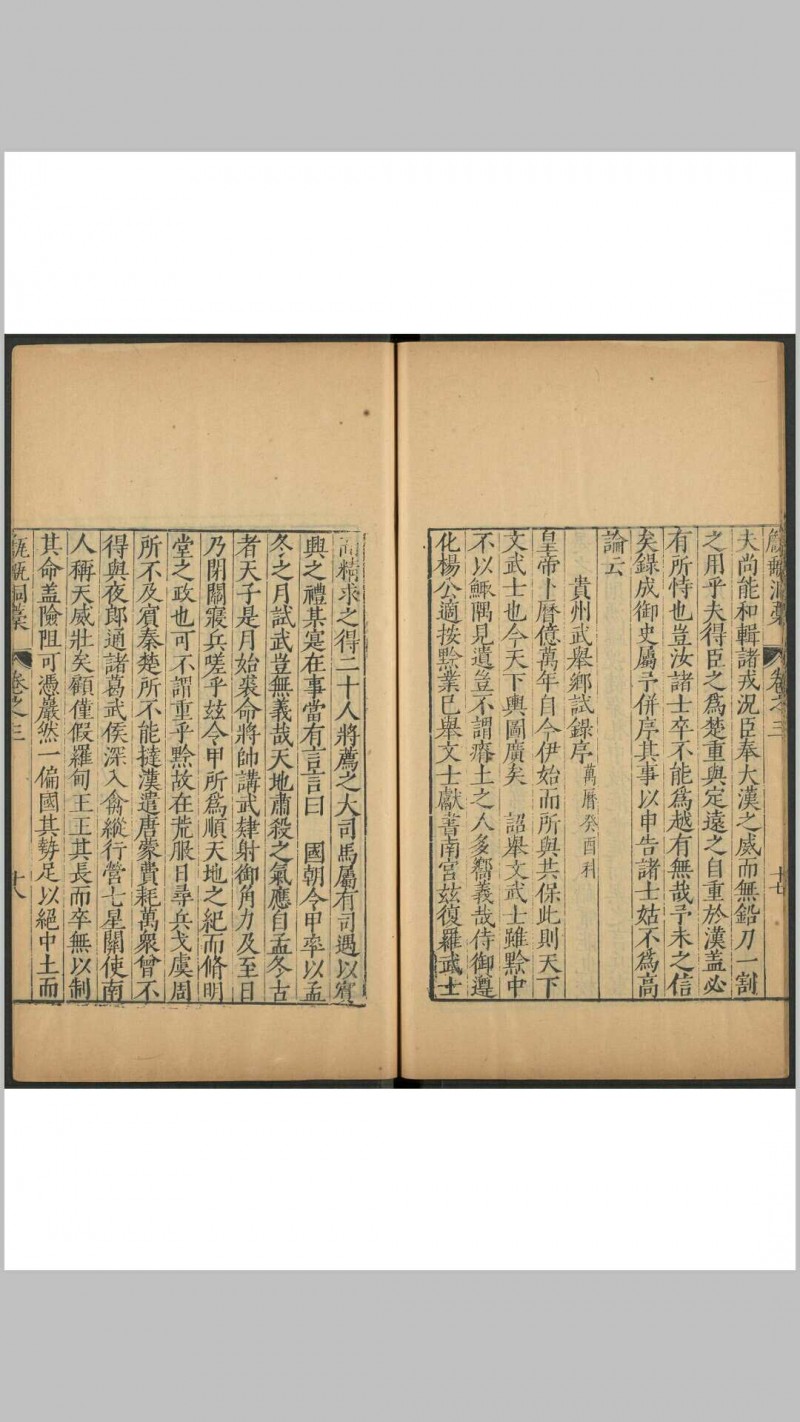 甔甀洞藁 卷之三 十七
夫尚能和輯諸戎況臣奉大漢之威而無鉛刀一割
之用乎夫得臣之為楚重與定遠之自重於漢盖必
有所恃也豈汝諸士卒不能為越有無哉予未之信
矣錄成御史屬予併序其事以申告諸士姑不為高
論云
貴州武舉鄉試錄序 萬曆癸酉科
皇帝卜曆億萬年自今伊始而所與共保此則天下
文武士也今天下輿圖廣矣 詔舉文武士雖黔中
不以鯫隅見遺豈不謂瘠土之人多嚮義哉侍御遵
化楊公適按黔業已舉文士獻書南宮兹復羅武士
精求之得二十人將薦之大司馬屬有司遇以賓
興之禮某寔在事當有言言曰 國朝令甲率以孟
冬之月試武豈無義哉天地肅殺之氣應自孟冬古
者天子是月始裘命將帥講武肄射御角力及至日
乃閉關寢兵嗟乎兹令甲所為順天地之紀而脩明
堂之政也可不謂重乎黔故在荒服日尋兵戈虞周
所不及賓秦楚所不能撻漢遣唐蒙費耗萬衆曾不
得與夜郎通諸葛武侯深入禽縱行營七星關使南
人稱天威壯矣顧僅假羅甸王王其長而卒無以制
其命盖險阻可憑巖然一偏國其勢足以絕中土而
甔甀洞藁 卷之三 十八